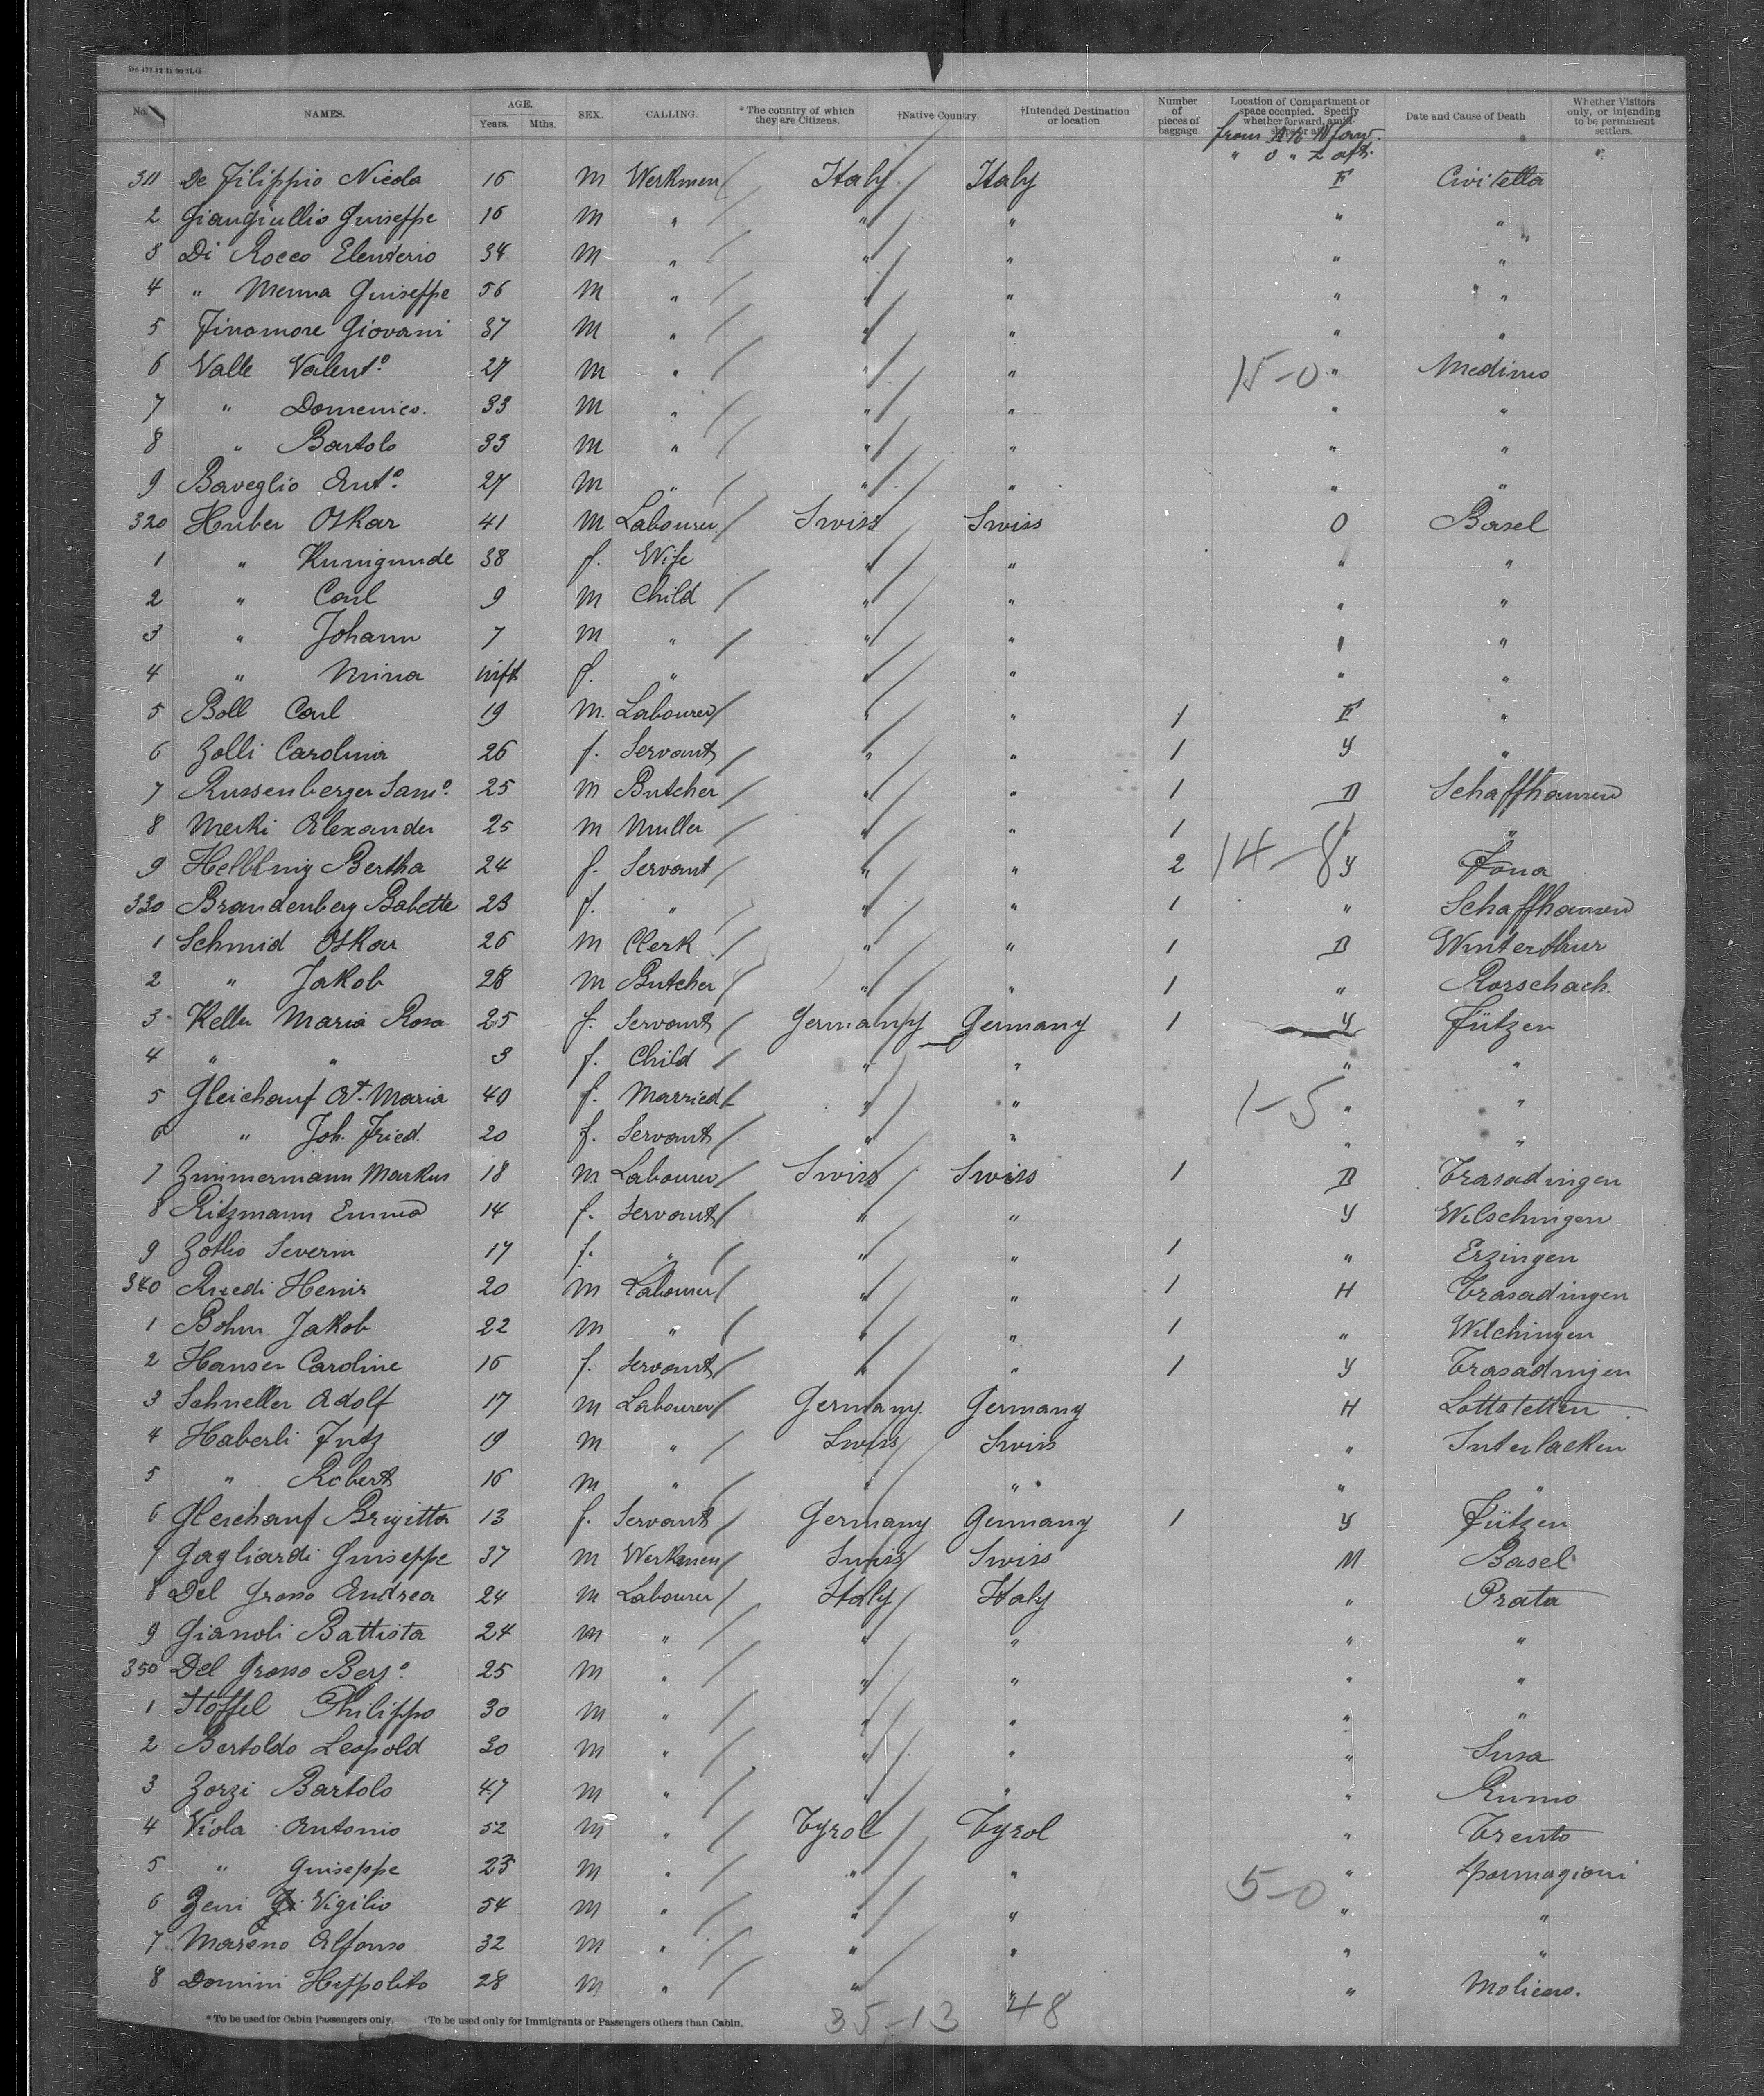 No. NAMES. AGE. Years. Mths. SEX. CALLING. *The country of which they are Citizens. †Native Country. †Intended Destination or location. Number of pieces of baggage. Location of Compartment or space occupied. Specify whether forward, Date and Cause of Death Whether Visitors only, or intending to be permanent settlers.
from A to N forw.
" O " Z aft.
311 De Filippio Nicola 16 M Werkmen Italy Italy F Civitella
2 Giangiullio Guiseppe 16 M " " " " "
3 Di Rocco Elenterio 34 M " " " " "
4 " Menna Guiseppe 56 M " " " " "
5 Finamore Giovani 37 M " " " " "
6 Valle Valent.º 27 M " " " 15-0 " Medimo
7 " Domenico. 33 M " " " " "
8 " Bartolo 33 M " " " " "
9 Baveglio Ant.º 27 M " " " " "
320 Huber Oskar 41 M Labourer Swiss Swiss O Basel
1 " Kunigunde 38 f. Wife " " " "
2 " Carl 9 M Child " " " "
3 " Johann 7 M " " " " "
4 " Mina inft f. " " " " "
5 Boll Carl 19 M. Labourer " " 1 F "
6 Zolli Carolina 26 f. Servant " " 1 Y "
7 Russenberger Sam.º 25 M Butcher " " 1 D Schaffhausen
8 Merki Alexander 25 M Muller " " 1 " "
9 Helbling Bertha 24 f. Servant " " 2 14-8 Y Jona
330 Brandenberg Babette 23 f. " " " 1 " Schaffhausen
1 Schmid Oskar 26 M Clerk " " 1 D Winterthur
2 " Jakob 28 M Butcher " " 1 " Rorschach.
3 Keller Maria Rosa 25 f. Servant Germany Germany 1 Y Fützen
4 " " 3 f. Child " " " "
5 Gleichauf At. Maria 40 f. Married " " 1-5 " "
6 " Joh. Fried. 20 f. Servant " " " "
7 Zimmermann Markus 18 M Labourer Swiss Swiss 1 D Trasadingen
8 Ritzmann Emma 14 f. Servant " " Y Wilschingen
9 Severin 17 f. " " " 1 " Erzingen
340 Ruedi Henir 20 M Labourer " " 1 H Trasadingen
1 Bohm Jakob 22 M " " " 1 " Wilchingen
2 Hauser Caroline 16 f. Servant " " 1 Y Trasadingen
3 Schneller Adolf 17 M Labourer Germany Germany H Lottstetten
4 Haberli Fritz 19 M " Swiss Swiss " Interlacken
5 " Robert 16 M " " " " "
6 Gleichauf Brigitta 13 f. Servant Germany Germany 1 Y Fützen
7 Gagliardi Guiseppe 37 M Werkmen Swiss Swiss M Basel
8 Del Grosso Andrea 24 M Labourer Italy Italy " Prata
9 Gianoli Battista 24 M " " " " "
350 Del Grosso 25 M " " " " "
1 Stoffel Philippo 30 M " " " " "
2 Bertoldo Leopold 30 M " " " " Susa
3 Zorzi Bartolo 47 M " " " " Rumo
4 Viola Antonio 52 M " Tyrol Tyrol " Trento
5 " Guiseppe 23 M " " " " Spormagioni
6 Zeni Vigilio 54 M " " " 5-0 " "
7 Mareno Alfonso 32 M " " " " "
8 Domini Hippolito 28 M " " " " Molieno.
*To be used for Cabin Passengers only. †To be used only for Immigrants or Passengers others than Cabin.
35-13 48